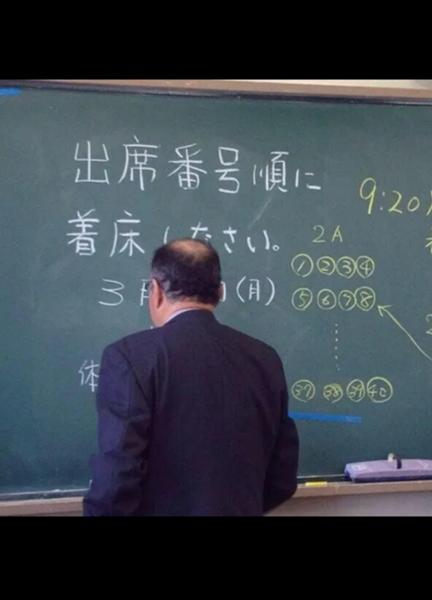 出席番号順に
着床しなさい。
3月 (月)
体
9:20
2A
①②③④
⑤⑥⑦⑧
㊲㊳㊴㊵